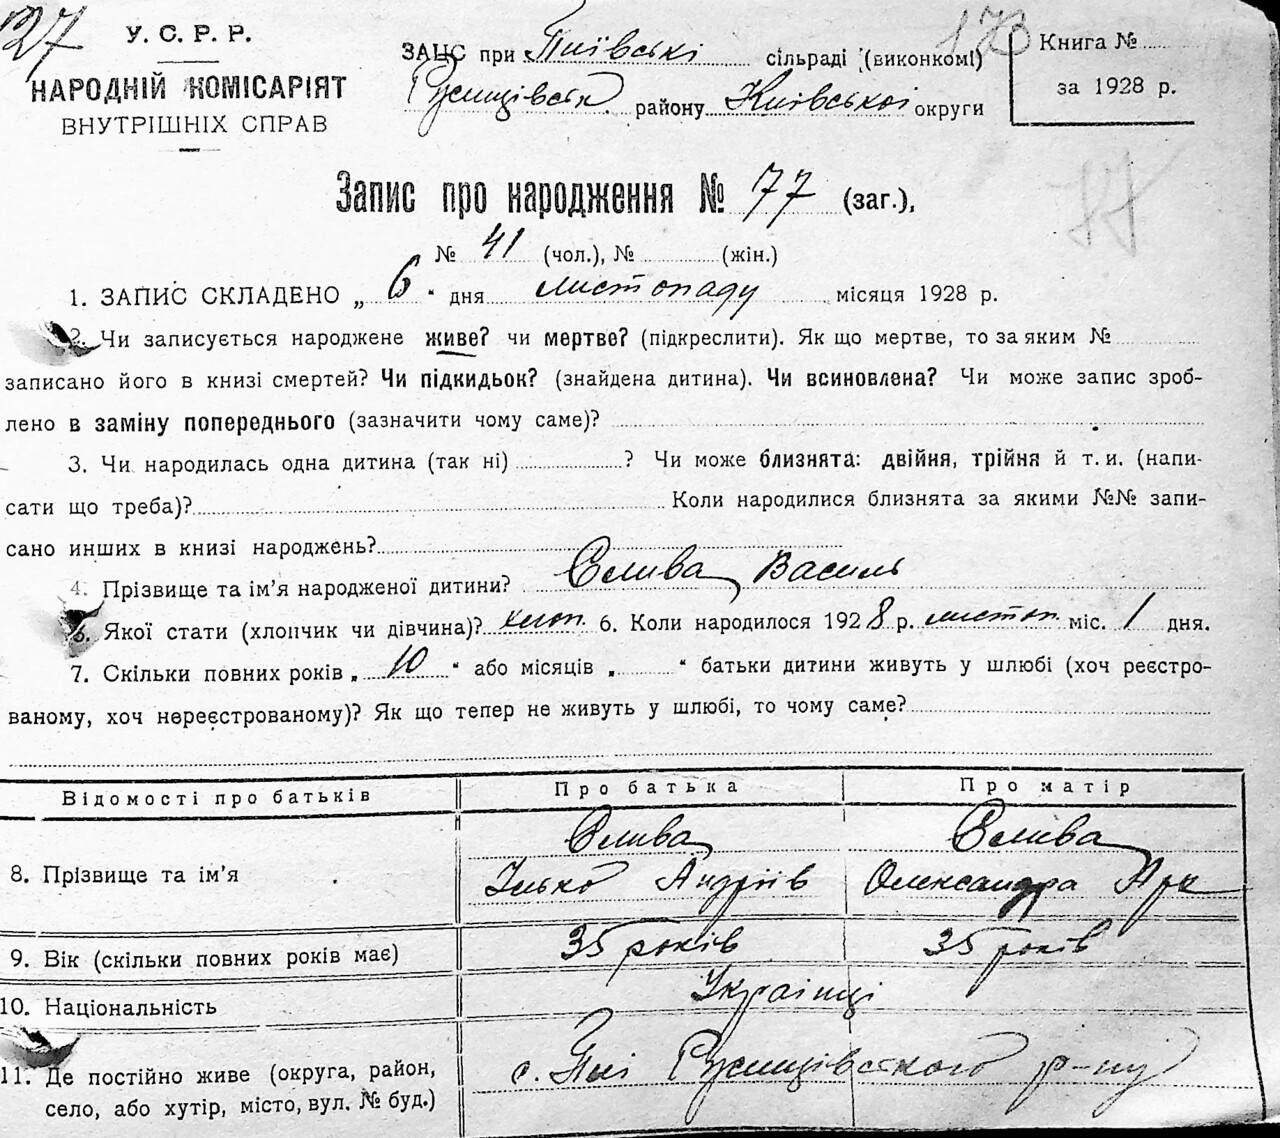 127
173
У. С. Р. Р.
НАРОДНІЙ КОМІСАРІЯТ
ВНУТРІШНІХ СПРАВ
ЗАГС при сільраді (виконкомі)
району Київської округи
Книга №
за 1928 р.
Запис про народження № 77 (заг.),
77
№ 41 (чол.), № (жін.)
1. ЗАПИС СКЛАДЕНО „ 6 “ дня листопаду місяця 1928 р.
2. Чи записується народжене живе? чи мертве? (підкреслити). Як що мертве, то за яким №
записано його в книзі смертей? Чи підкидьок? (знайдена дитина). Чи всиновлена? Чи може запис зроб-
лено в заміну попереднього (зазначити чому саме)?
3. Чи народилась одна дитина (так ні) ? Чи може близнята: двійня, трійня й т. и. (напи-
сати що треба)? Коли народилися близнята за якими №№ запи-
сано инших в книзі народжень?
4. Прізвище та ім’я народженої дитини? Слива Василь
5. Якої стати (хлопчик чи дівчина)? хлоп. 6. Коли народилося 1928 р. листоп. міс. 1 дня.
7. Скільки повних років „ 10 “ або місяців „ “ батьки дитини живуть у шлюбі (хоч реєстро-
ваному, хоч нереєстрованому)? Як що тепер не живуть у шлюбі, то чому саме?
Відомості про батьків Про батька Про матір
8. Прізвище та ім’я Слива Ілько Андріїв Слива Олександра
9. Вік (скільки повних років має) 35 років 35 років
10. Національність Українці
11. Де постійно живе (округа, район,
село, або хутір, місто, вул. № буд.) с. Пії р-ну